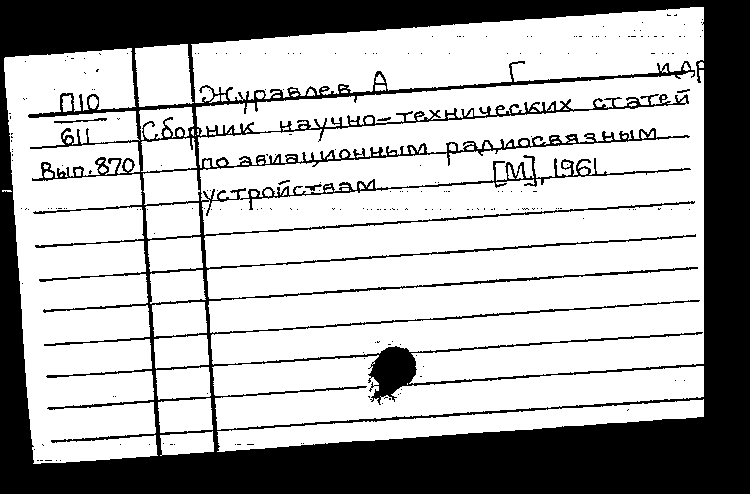 П10
611
Вып. 870
Журавлев, А Г и др
Сборник научно-технических статей
по авиационным радиосвязным
устройствам [М], 1961.